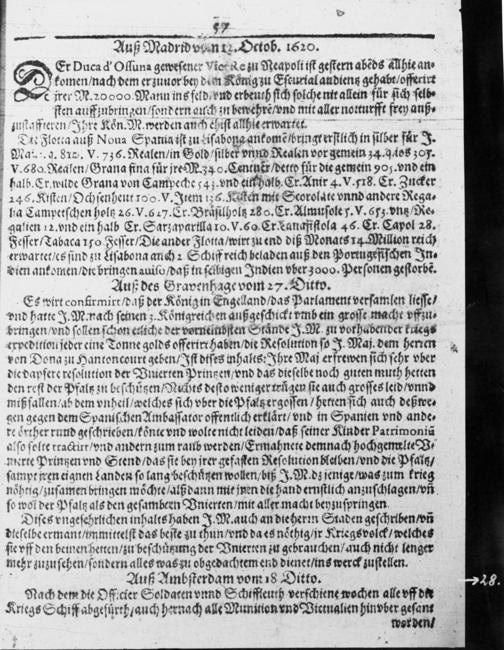 57
Auß Madrid vom 12. Octob. 1620.
DEr Duca d'Ossuna gewesener Vice Re zu Neapoli ist gestern abẽds allhie an-
komen/nach dem er zuvor bey dem König zu Escurial audientz gehabt/offerirt
jrer M. 20000. Mann ins feld/vnd erbeuth sich solche nit allein für sich selb-
sten auffzubringen/sondern auch zu bewehrẽ/vnd mit aller notturfft frey auß-
zustaffieren/Ihre Kön. M. werden auch ehist allhie erwartet.
Die Flotta auß Noua Spania ist zu Lisabona ankomẽ/bringt erstlich in silber für J.
V. 736. Realen/in Gold/silber vnnd Realen vor gemein
V. 680. Realen/Grana fina für jre M. 340. Centner/detto für die gemein 905. vnd ein
halb. Er. wilde Grana von Campeche 543. vnd ein halb. Er. Anir 4. V. 518. Er. Zucker
246. Kisten/Ochsenheut 100. V. Item 136. Kisten mit Scorolate vnnd andere Rega-
lia Campetschen holtz 26. V. 627. Er. Bräsilholtz 280. Er. Almusole 5. V. 653. vnz/Re-
galien 12. vnd ein halb Er. Sarzaparilla 10. V. 60. Er. Kanafistola 46. Er. Capol 28.
Fesser/Tabaca 150 Fesser/Die ander Flotta/wirt zu end diß Monats 14. Million reich
erwartet/es sind zu Lisabona auch 2 Schiff reich beladen auß den Portugesischen In-
dien ankomen/die bringen auiso/daß in selbigen Indien vber 3000. Personen gestorbẽ.
Auß des Gravenhage vom 27. Ditto.
Es wirt confirmirt/daß der König in Engelland/das Parlament versamlen liesse/
vnd hatte J. M. nach seinen 3. Königreichen außgeschickt vmb ein grosse macht vffzu-
bringen/vnd sollen schon etliche der vornembsten Stände J. M. zu vorhabender kriegs
expedition jeder eine Tonne golds offerirt haben/die Resolution so J. Maj. dem herren
von Dona zu Hantoncourt geben/Ist dises inhalts: Ihre Maj erfrewen sich sehr vber
die dapfere resolution der Vnierten Printzen/vnd das dieselbe noch guten muth hetten
den rest der Pfaltz zu beschützen/Nichts desto weniger trügen sie auch grosses leid/vnnd
mißfallen/ab dem vnheil/welches sich vber die Pfaltz ergossen/hetten sich auch deßwe-
gen gegen dem Spanischen Ambassator offentlich erklärt/vnd in Spanien vnd ande-
re örther rund geschrieben/könte vnd wolte nicht leiden/daß seiner Kinder Patrimoniũ
also solte tractirt/vnd andern zum raub werden/Ermahnete demnach hochgemelte V-
nierte Printzen vnd Stend/das sie bey jrer gefasten Resolution bleiben/vnd die Pfaltz/
sampt jren eignen Landen so lang beschützen wollen/biß J. M. dz jenige/was zum krieg
nöhtig/zusamen bringen möchte/alß dann mit jnen die hand ernstlich anzuschlagen/vñ
so wol der Pfaltz als den gesambten Vnierten/mit aller macht beyzuspringen.
Dises vngefehrlichen inhalts haben J. M. auch an die herrn Staden geschriben/vñ
dieselb ermant/immittelst das beste zu thun/vnd da es nöthig/jr Kriegsvolck/welches
sie vff den beinen hetten/zu beschützung der Vnierten zu gebrauchen/auch nicht lenger
mehr zuzusehen/sondern alles was zu obgedachtem end dienet/ins werck zustellen.
Auß Ambsterdam vom 18 Ditto.
→28.
Nach dem die Officier Soldaten vnnd Schiffleuth verschiene wochen alle vff die
Kriegs Schiff abgeführt/auch hernach alle Munition vnd Victuglien hinvber gesant
worden/